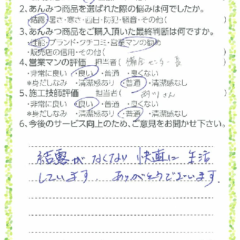 2. あんみつ商品を選ばれた際の悩みは何でしたか。
結露・暑さ・寒さ・西日・防犯・騒音・その他(
3. あんみつ商品をご購入頂いた最終判断は何ですか。
性能・ブランド・クチコミ・営業マンの
販売店の信用・その他(
4. 営業マンの評価 担当者(
・非常に良い・良い・普通・良くない
・身だしなみ/清潔感あり・普通・清潔感なし
5. 施工技師評価 担当者(
・非常に良い・良い・普通・良くない
・身だしなみ/清潔感あり・普通・清潔感なし
6. 今後のサービス向上のため、ご意見をお聞かせ下さい。
結露がなくなり 快適に 生活
しています。 ありがとうございます。